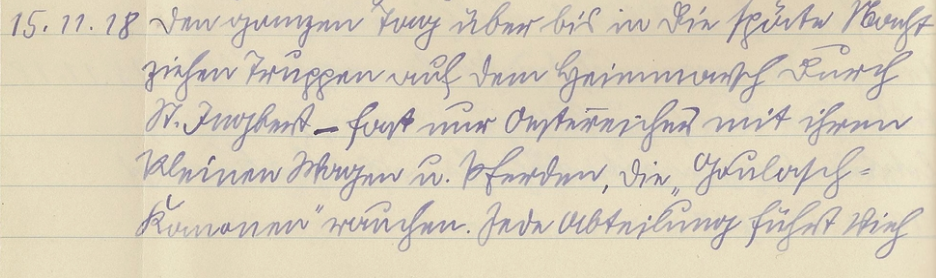 15.11.18 Den ganzen Tag über bis in die späte Nacht
ziehen Truppen auf dem Heimmarsch durch
St. Ingbert – fast nur Östereicher mit ihren
kleinen Wagen u. Pferden, die „Goulasch-
Kanonen" rauchen. Jede Abteilung führt Vieh